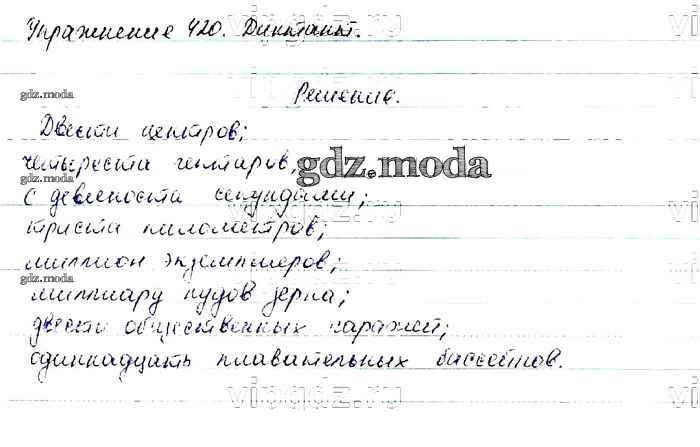 Упражнение 420. Диктант.
Решение.
Двести центров;
четыреста гектаров,
с девяноста секундами;
триста километров;
миллион экземпляров;
миллиард пудов зерна;
двести общественных гаражей;
одиннадцать плавательных бассейнов.
gdz.moda
gdz.moda
gdz.moda
gdz.moda
vipgdz.ru
vipgdz.ru